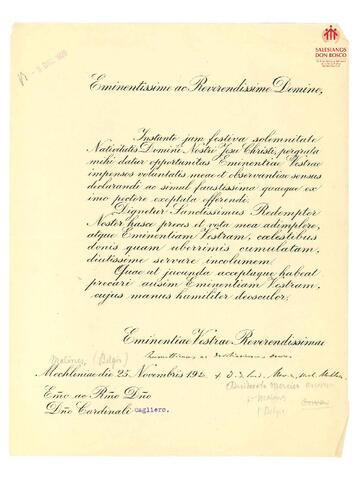 SALESIANOS
DON BOSCO
Eminentissime ac Reverendissime Domine,
Instante jam festiva solemnitate
Nativitatis Domini Nostri Jesu Christi, pergrata
mihi datur opportunitas Eminentiae Vestrae
impensos voluntatis meae et observantiae sensus
declarandi ac simul faustissima quaeque ex
imo pectore exoptata offerendi.
Dignetur Sanctissimus Redemptor
Noster hasce preces et vota mea adimplere,
atque Eminentiam Vestram, coelestibus
donis quam uberrimis cumulatam,
diutissime servare incolumem.
Quae ut jucunda acceptaque habeat
precari ausim Eminentiam Vestram,
cujus manus humiliter deosculor.
Eminentiae Vestrae Reverendissimae
Malines (Belgio)
Mechliniae die 25 Novembris 192
Emo ac Rmo Dno
Dno Cardinali Cagliero.